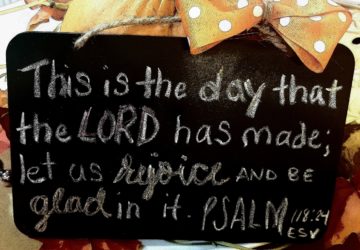 This is the day that
the LORD has made;
let us rejoice AND BE
glad in it. PSALM 118:24
ESV